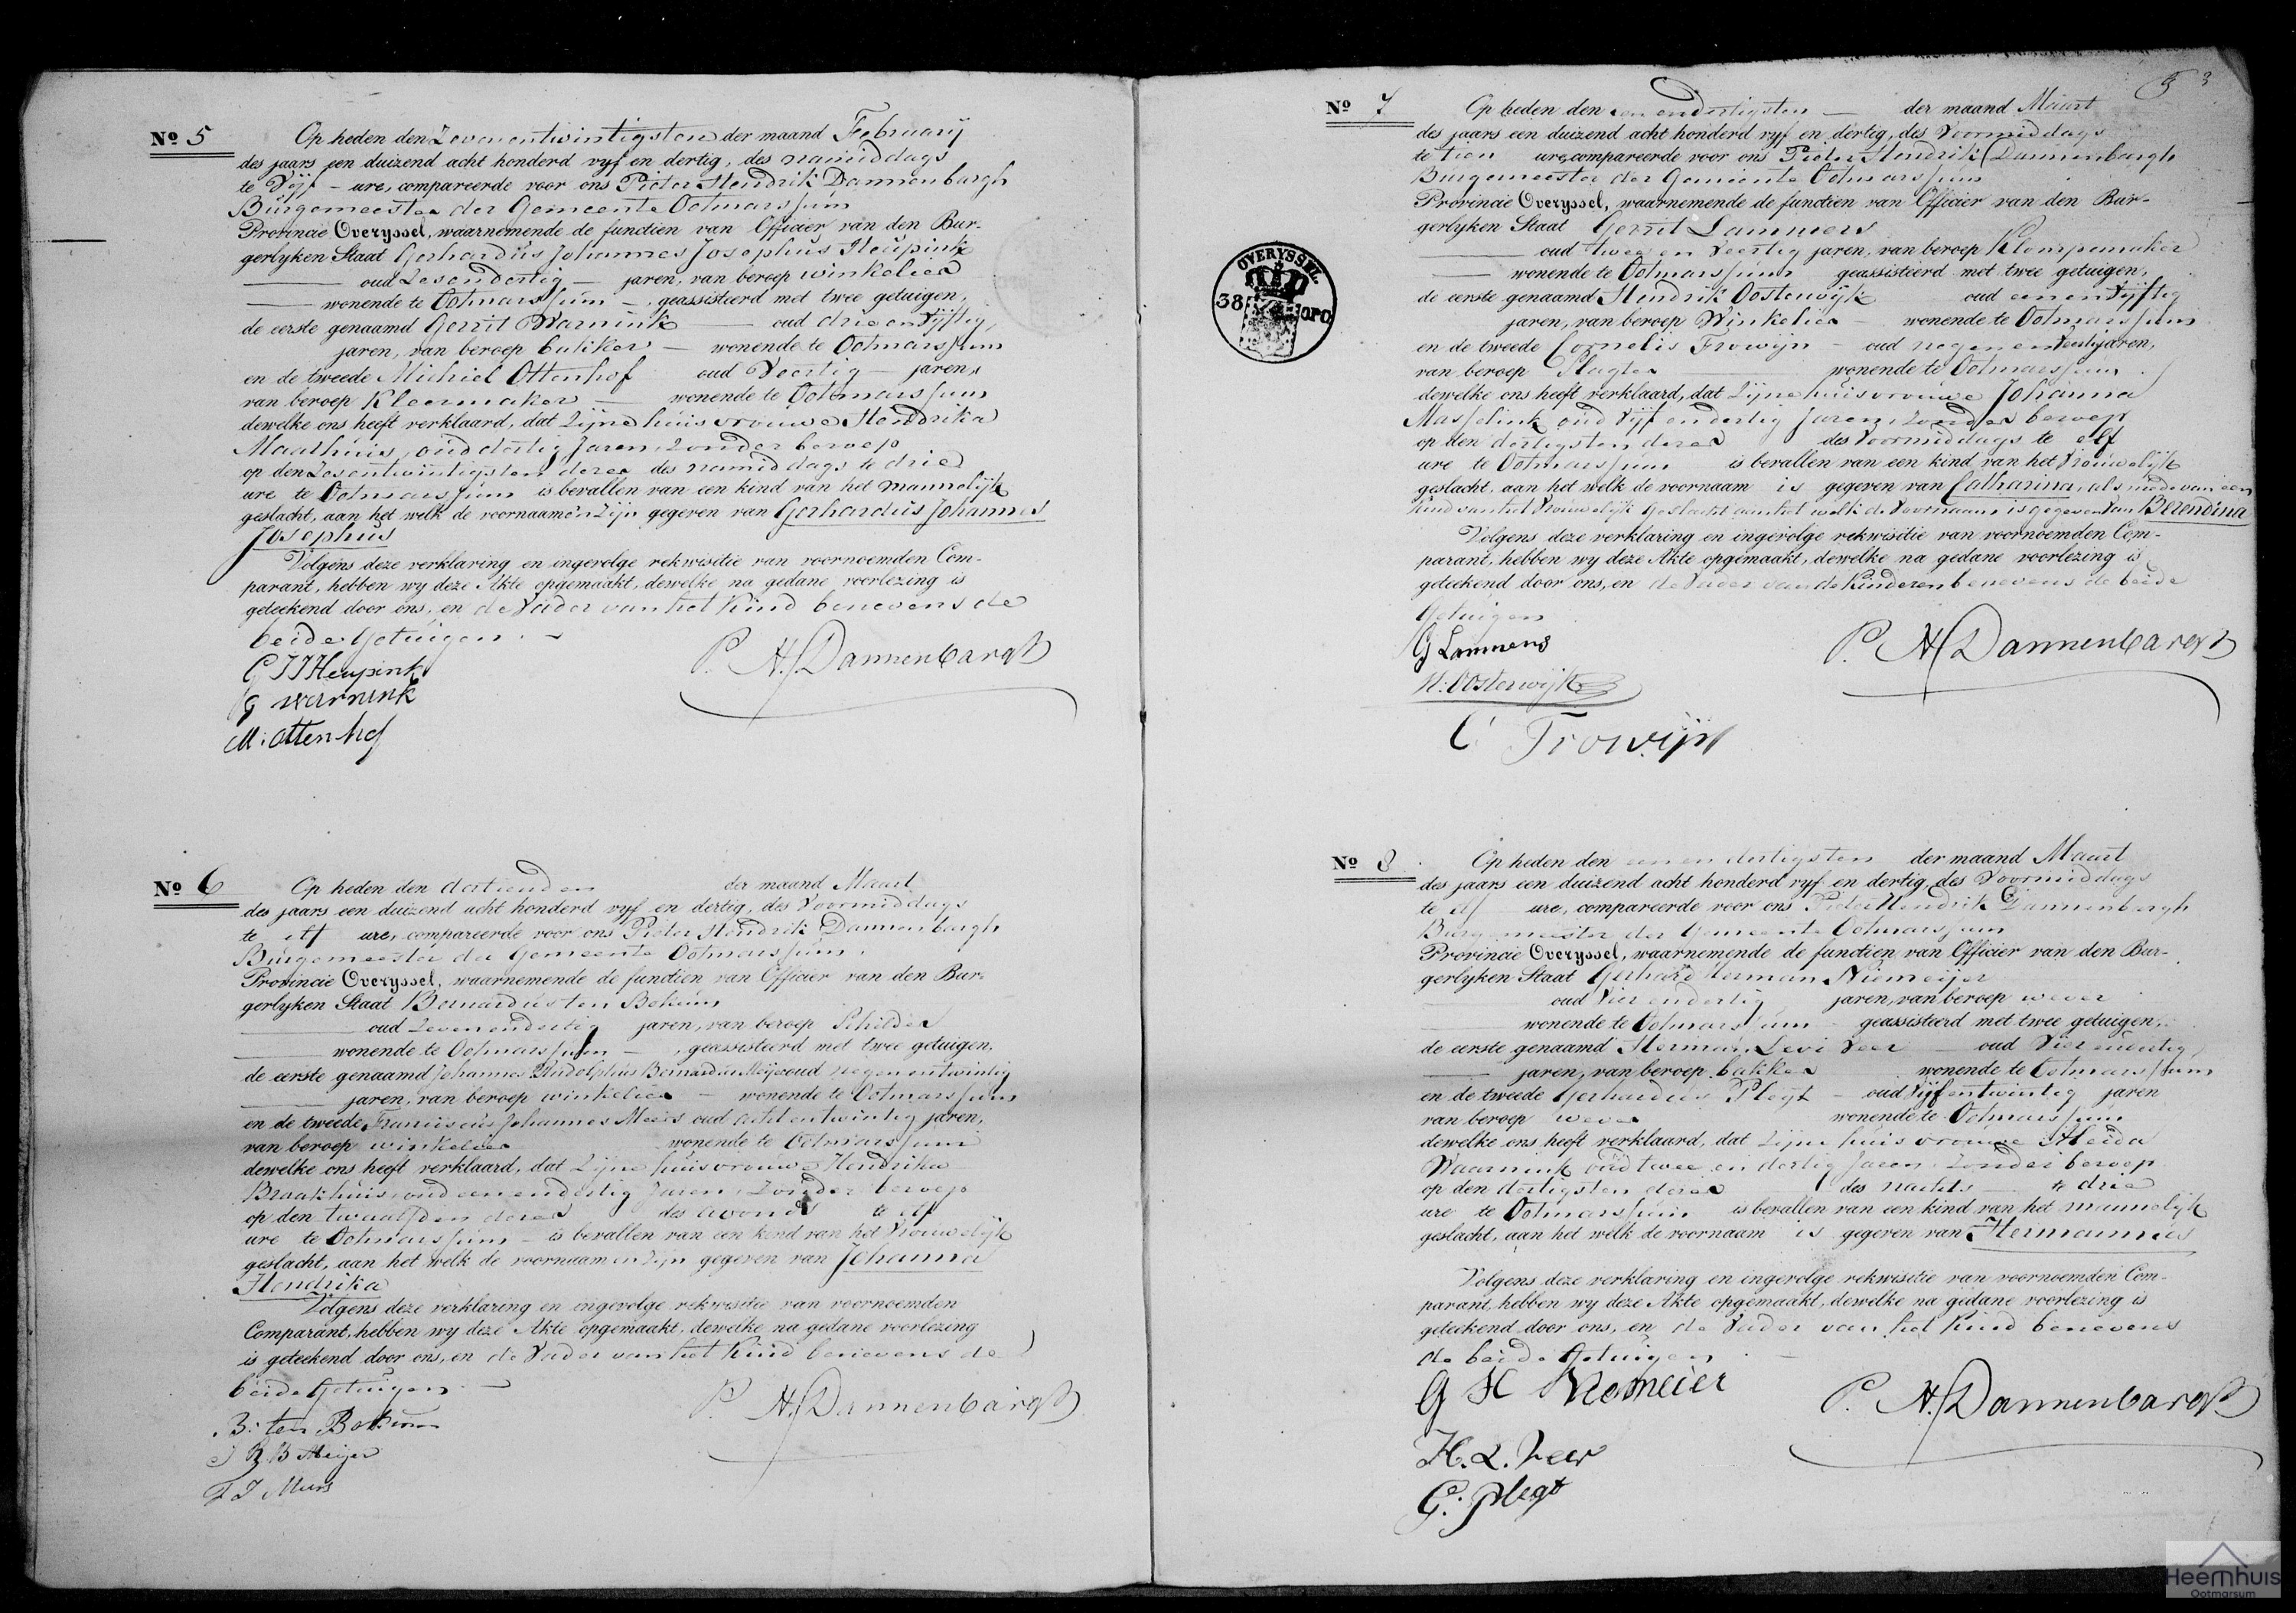 Nº 5
Op heden den Zevenentwintigsten der maand February
des jaars een duizend acht honderd vyf en dertig, des namiddags
te Vyf - ure, compareerde voor ons Pieter Hendrik Dannenbargh
Burgemeester der Gemeente Ootmarssum
Provincie Overyssel, waarnemende de functien van Officier van den Bur-
gerlyken Staat Gerhardus Johannes Josephus Heupink
oud Zesendertig jaren, van beroep winkelier
wonende te Ootmarssum -, geassisteerd met twee getuigen,
de eerste genaamd Gerrit Warnink oud drie en Vijftig,
jaren, van beroep bakker - wonende te Ootmarssum
en de tweede Michiel Ottenhof oud Veertig - jaren,
van beroep Kleermaker - wonende te Ootmarssum
dewelke ons heeft verklaard, dat Zijne huisvrouwe Hendrika
Maathuis, oud dertig Jaren, Zonder beroep
op den Zesentwintigsten dezer des namiddags te drie
ure te Ootmarssum is bevallen van een kind van het mannelijk
geslacht, aan het welk de voornaamen Zijn gegeven van Gerhardus Johannes
Josephus
Volgens deze verklaring en ingevolge rekwisitie van voornoemden Com-
parant, hebben wy deze Akte opgemaakt, dewelke na gedane voorlezing is
geteekend door ons, en de Vader van het Kind benevens de
beide Getuigen. -
G J J Heupink
G Warnink
M: Ottenhof
P. H. Dannenbargh
Nº 6
Op heden den dertienden der maand Maart
des jaars een duizend acht honderd vyf en dertig, des Voormiddags
te elf ure, compareerde voor ons Pieter Hendrik Dannenbargh
Burgemeester der Gemeente Ootmarssum
Provincie Overyssel, waarnemende de functien van Officier van den Bur-
gerlyken Staat Bernardus ten Bokum
oud Zevenendertig jaren, van beroep Schilder
wonende te Ootmarssum -, geassisteerd met twee getuigen,
de eerste genaamd Johannes Rudolphus Bernardus Meijer oud negenentwintig
jaren, van beroep winkelier - wonende te Ootmarssum
en de tweede Franciscus Johannes Meurs oud achtentwintig jaren,
van beroep winkelier wonende te Ootmarssum
dewelke ons heeft verklaard, dat Zijne huisvrouwe Hendrika
Braakhuis, oud eenendertig Jaren, Zonder beroep
op den twaalfden dezer des avonds te elf
ure te Ootmarssum - is bevallen van een kind van het Vrouwelijk
geslacht, aan het welk de voornaamen Zijn gegeven van Johanna
Hendrika
Volgens deze verklaring en ingevolge rekwisitie van voornoemden
Comparant, hebben wy deze Akte opgemaakt, dewelke na gedane voorlezing
is geteekend door ons, en de Vader van het Kind benevens de
beide Getuigen. -
B: ten Bokum
J R B Meijer
F J Meurs
P. H. Dannenbargh
3
OVERYSSEL
38
OPC
Nº 7
Op heden den een endertigsten - der maand Maart
des jaars een duizend acht honderd vyf en dertig, des Voormiddags
te tien ure, compareerde voor ons Pieter Hendrik Dannenbargh
Burgemeester der Gemeente Ootmarssum
Provincie Overyssel, waarnemende de functien van Officier van den Bur-
gerlyken Staat Gerrit Lammers
oud twee en Veertig jaren, van beroep Klompemaker
wonende te Ootmarssum geassisteerd met twee getuigen,
de eerste genaamd Hendrik Oosterwijk oud eenen Vijftig
jaren, van beroep Winkelier - wonende te Ootmarssum
en de tweede Cornelis Frowijn - oud negen en Veertig jaren,
van beroep Slagter wonende te Ootmarssum
dewelke ons heeft verklaard, dat Zijne huisvrouwe Johanna
Masselink oud Vijf en dertig Jaren, Zonder beroep
op den dertigsten dezer des Voormiddags te elf
ure te Ootmarssum is bevallen van een kind van het Vrouwelijk
geslacht, aan het welk de voornaam is gegeven van Catharina, als mede van een
Kind van het Vrouwelijk Geslacht aan het welk de Voornaam is gegeven van Berendina
Volgens deze verklaring en ingevolge rekwisitie van voornoemden Com-
parant, hebben wy deze Akte opgemaakt, dewelke na gedane voorlezing is
geteekend door ons, en de Vader van de Kinderen benevens de beide
Getuigen
G Lammers
H: Oosterwijk
C Frowijn
P. H. Dannenbargh
Nº 8
Op heden den eenen dertigsten der maand Maart
des jaars een duizend acht honderd vyf en dertig, des Voormiddags
te elf ure, compareerde voor ons Pieter Hendrik Dannenbargh
Burgemeester der Gemeente Ootmarssum
Provincie Overyssel, waarnemende de functien van Officier van den Bur-
gerlyken Staat Gerhard Herman Niemeijer
oud Vier endertig jaren, van beroep wever
wonende te Ootmarssum - geassisteerd met twee getuigen,
de eerste genaamd Herman Levi Veer oud Vier endertig
jaren, van beroep bakker wonende te Ootmarssum
en de tweede Gerhardus Plegt - oud Vijfentwintig jaren
van beroep wever wonende te Ootmarssum
dewelke ons heeft verklaard, dat Zijne huisvrouwe Aleida
Waarnink oud twee en dertig Jaren, Zonder beroep
op den dertigsten dezer des nachts te drie
ure te Ootmarssum is bevallen van een kind van het mannelijk
geslacht, aan het welk de voornaam is gegeven van Hermannus
Volgens deze verklaring en ingevolge rekwisitie van voornoemden Com-
parant, hebben wy deze Akte opgemaakt, dewelke na gedane voorlezing is
geteekend door ons, en de Vader van het Kind benevens
de beide Getuigen. -
G H Niemeier
H. L. Veer
G. Plegt
P. H. Dannenbargh
Heemhuis
Ootmarsum